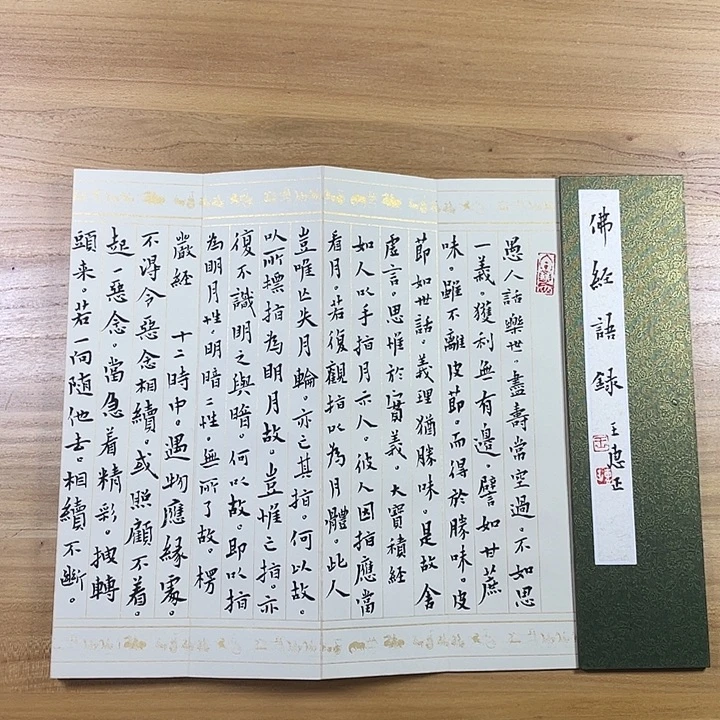 佛經語錄
愚人話樂世。盡壽常空過。不如思
一義。獲利無有邊。譬如甘蔗
味。雖不離皮節。而得於勝味。皮
節如世話。義理猶勝味。是故舍
虛言。思惟於實義。大寶積經
如人以手指月示人。彼人因指應當
看月。若復觀指以為月體。此人
豈唯亡失月輪。亦亡其指。何以故。
以所標指為明月故。豈惟亡指。亦
復不識明之與暗。何以故。即以指
為明月性。明暗二性。無所了故。楞
嚴經 十二時中。遇物應緣處。
不得令惡念相續。或照顧不着。
起一惡念。當急着精彩。拽轉
頭來。若一向隨他去。相續不斷。